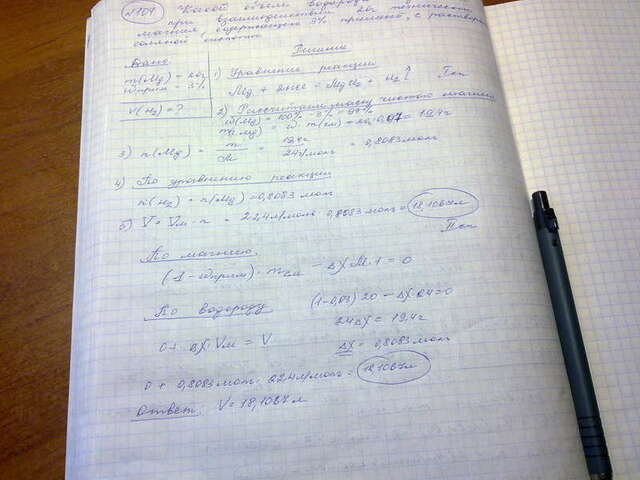 № 104 Какой объем водорода
при взаимодействии 20г технического
магния, содержащего 3% примесей, с раствором
соляной кислоты
Дано: Решение
m(Mg) = 20г
ωприм = 3%
V(H₂) = ?
1) Уравнение реакции I сп
Mg + 2HCl = MgCl₂ + H₂↑
2) Рассчитаем массу чистого магния
ω(Mg) = 100% - 3% = 97%
m(Mg) = ω · m(см) = 20 · 0,97 = 19,4г
3) n(Mg) = m/M = 19,4г/24г/моль = 0,8083 моль
4) По уравнению реакции
n(H₂) = n(Mg) = 0,8083 моль
5) V = Vм · n = 22,4л/моль · 0,8083 моль = 18,1067л
II сп
По магнию
(1 - ωприм) · mсм - ΔX · M · 1 = 0
По водороду (1-0,03) 20 - ΔX · 24 = 0
24ΔX = 19,4г
0 + ΔX · Vм = V
ΔX = 0,8083 моль
0 + 0,8083 моль · 22,4л/моль = 18,1067л
Ответ: V = 18,1067 л